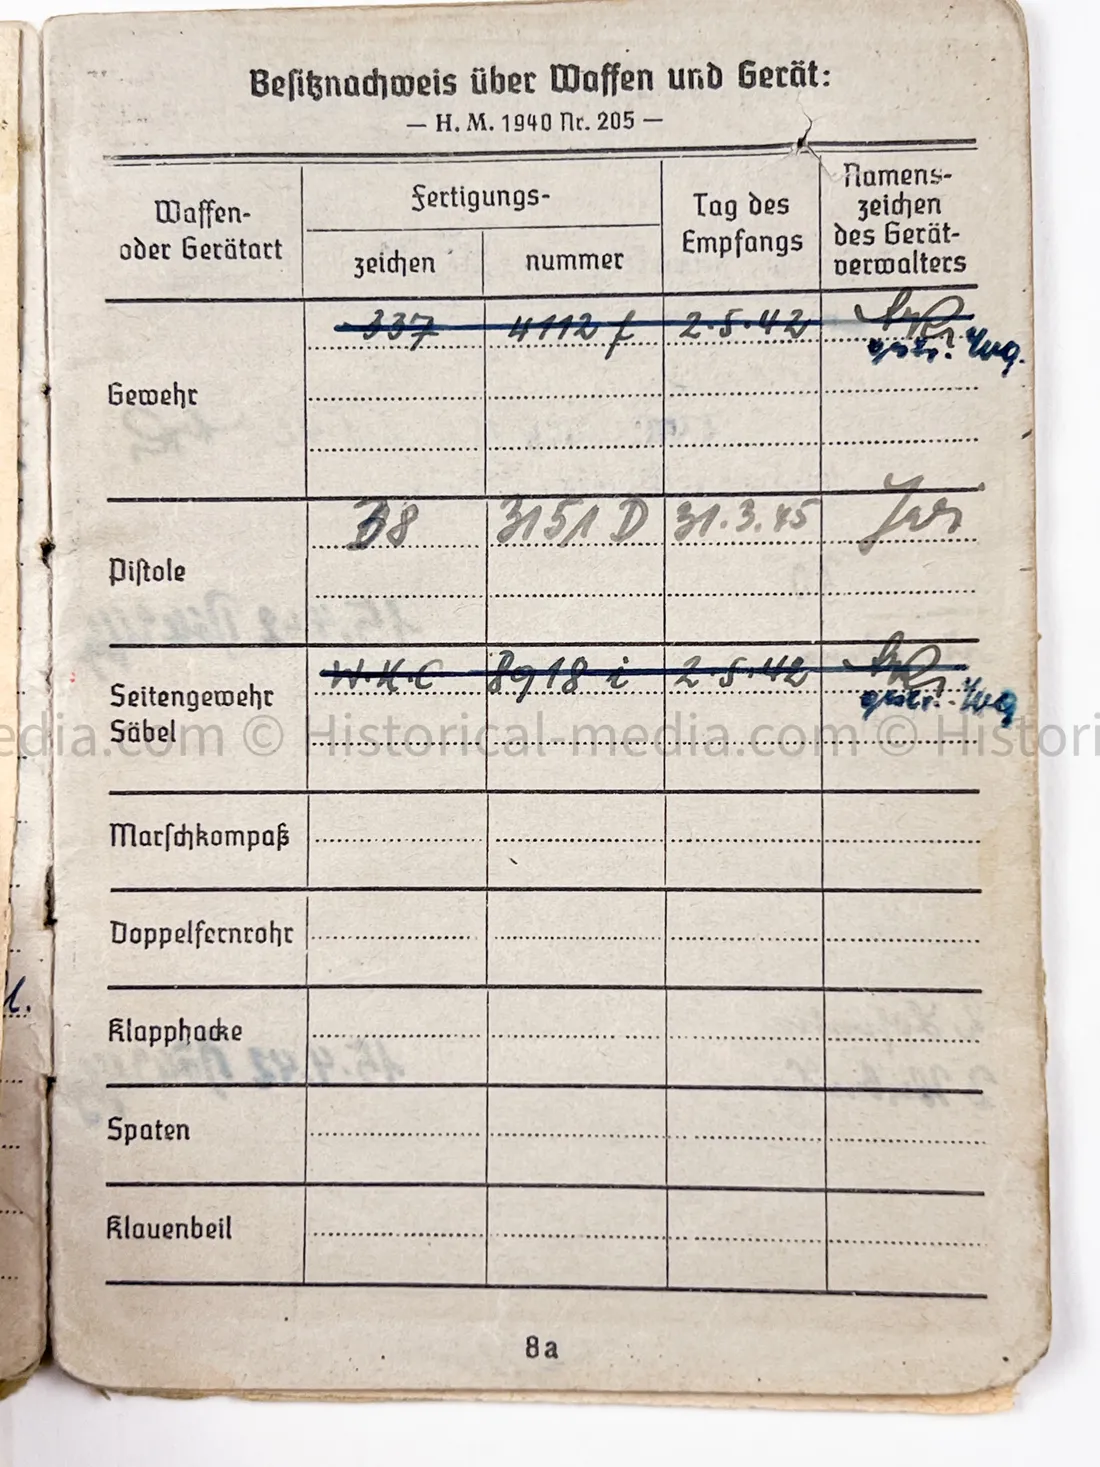 Besitznachweis über Waffen und Gerät:
— H. M. 1940 Nr. 205 —
Waffen-
oder Gerätart
Fertigungs-
zeichen
nummer
Tag des
Empfangs
Namens-
zeichen
des Gerät-
verwalters
Gewehr
337 4112 f 2.5.42
gestr.
Pistole
38 3151 D 31.3.45
Seitengewehr
Säbel
W.K.C 8918 i 2.5.42
gestr.
edia.com © Historical-media.com © Histori
Marschkompaß
Doppelfernrohr
Klapphacke
Spaten
Klauenbeil
8a